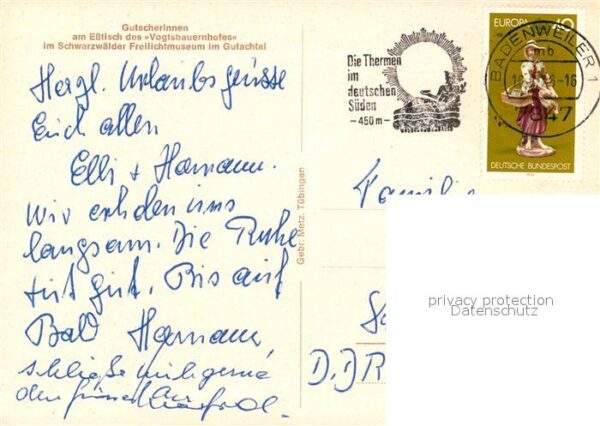 Gutacherinnen
am Eßtisch des »Vogtsbauernhofes«
im Schwarzwälder Freilichtmuseum im Gutachtal
Hergl. Urlaubsgrüsse
Euch allen
Elli +
Wir erholen uns
langsam. Die Ruhe
tut gut. Bis auf
Bald
schließe mich gerne
den
Gebr. Metz, Tübingen
Die Thermen
im
deutschen
Süden
-450m-
EUROPA
BADENWEILER 1
mb
-16
7847
DEUTSCHE BUNDESPOST
Familie
DDR
privacy protection
Datenschutz